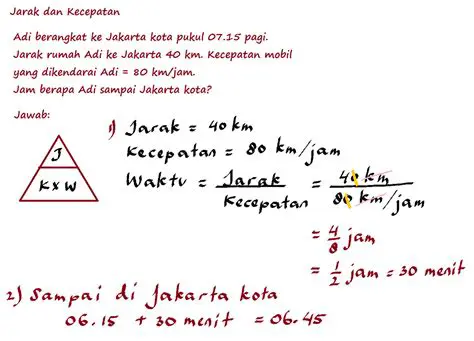 Jarak dan Kecepatan
Adi berangkat ke Jakarta kota pukul 07.15 pagi.
Jarak rumah Adi ke Jakarta 40 km. Kecepatan mobil
yang dikendarai Adi = 80 km/jam.
Jam berapa Adi sampai Jakarta kota?
Jawab:
J
K x W
1) Jarak = 40 km
Kecepatan = 80 km/jam
Waktu = Jarak / Kecepatan = 40 km / 80 km/jam
= 4/8 jam
= 1/2 jam = 30 menit
2) Sampai di Jakarta kota
06.15 + 30 menit = 06.45